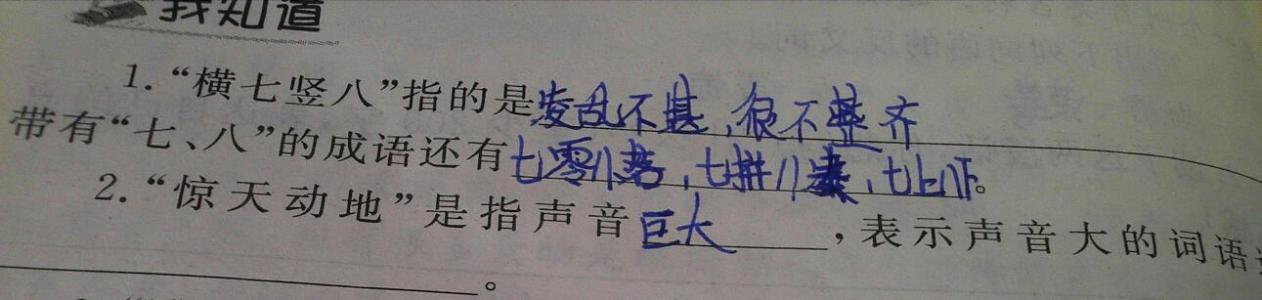 我知道
1.“横七竖八”指的是凌乱不堪,很不整齐
带有“七、八”的成语还有七零八落,七拼八凑,七上八下。
2.“惊天动地”是指声音巨大,表示声音大的词语
。